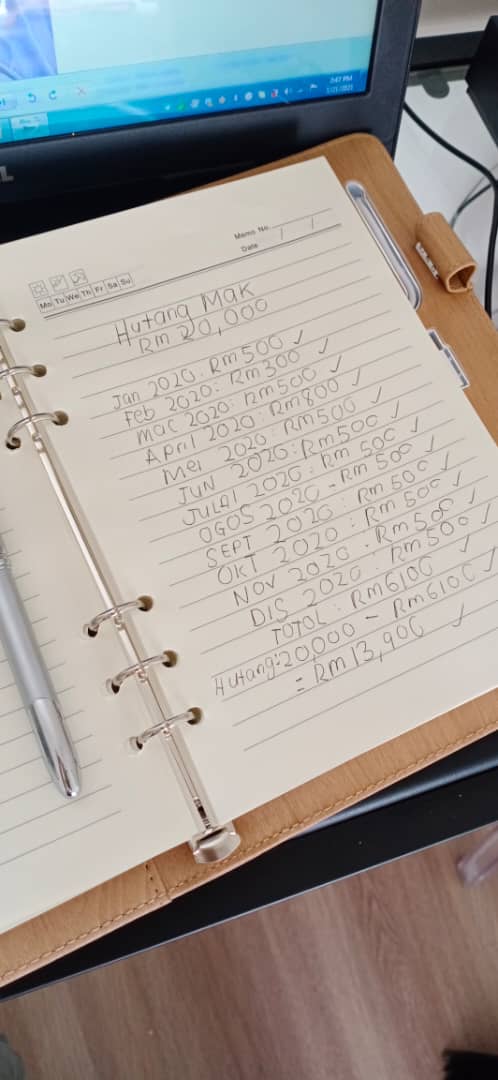 2:47 PM
Memo No.
Date / /
Mo Tu We Th Fr Sa Su
Hutang Mak
Rm 20,000
Jan 2020: Rm500 ✓
Feb 2020: Rm 300 ✓
Mac 2020: Rm500 ✓
April 2020: Rm800 ✓
Mei 2020: Rm500 ✓
JUN 2020: Rm500 ✓
JULAI 2020: Rm 500 ✓
OGOS 2020 - Rm 500 ✓
SEPT 2020: Rm 500 ✓
OKT 2020: Rm 500 ✓
NOV 2020: Rm500 ✓
DIS 2020: Rm500 ✓
TOTOL: Rm6100 ✓
Hutang: 20000 - Rm6100 ✓
= Rm 13,900 ✓